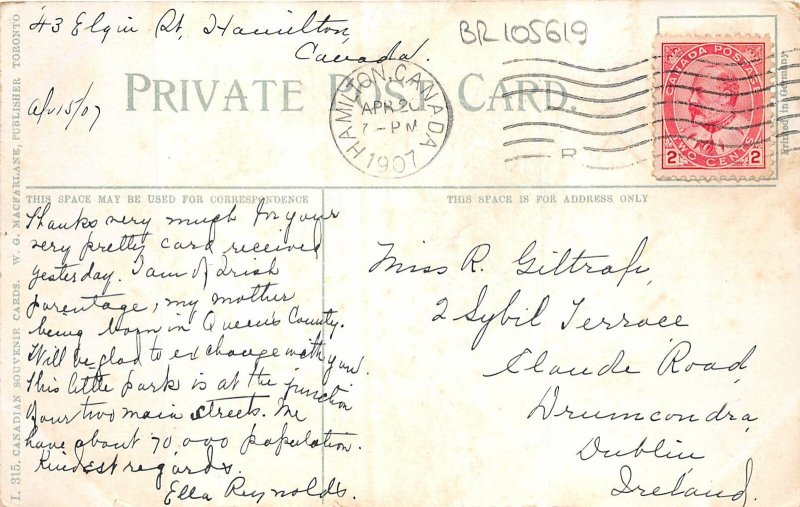 43 Elgin St, Hamilton,
Canada.
BR105619
Ap/15/07
PRIVATE POST CARD.
HAMILTON, CANADA
APR 20
7-PM
1907
CANADA POSTAGE
2 TWO CENTS 2
Printed in Germany
I. 315. CANADIAN SOUVENIR CARDS. W. G. MACFARLANE, PUBLISHER TORONTO
THIS SPACE MAY BE USED FOR CORRESPONDENCE
THIS SPACE IS FOR ADDRESS ONLY
Thanks very much for your
very pretty card received
yesterday. I am of Irish
parentage, my mother
being born in Queen's County.
Will be glad to exchange with you.
This little park is at the junction
of our two main streets. We
have about 70,000 population.
Kindest regards.
Ella Reynolds.
Miss R. Giltrap,
2 Sybil Terrace
Claude Road,
Drumcondra,
Dublin,
Ireland.